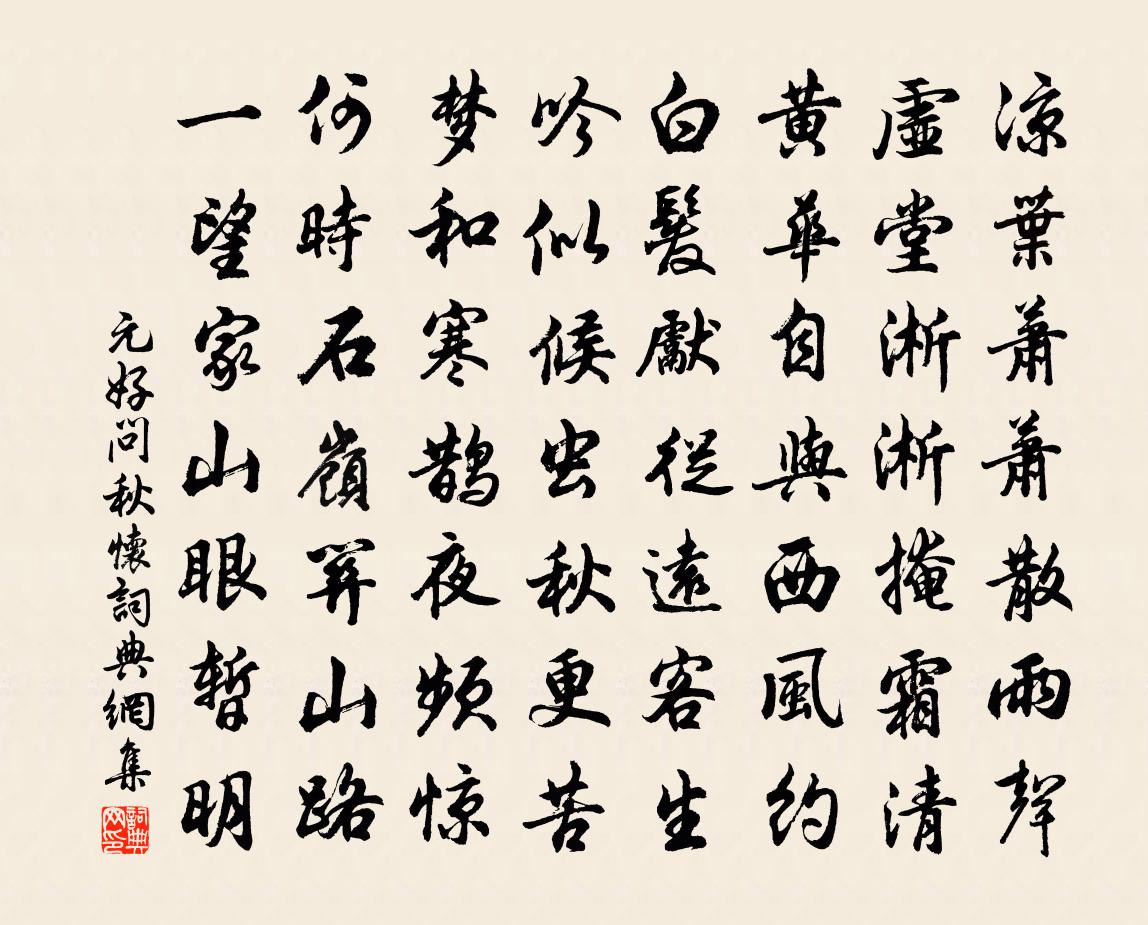 涼葉萧萧散雨聲
虛堂淅淅掩霜清
黃華自與西風約
白髮獻從遠客生
吟似候虫秋更苦
梦和寒鵲夜頻惊
何時石嶺關山路
一望家山眼暫明
元好问秋懷詞典網集
詞典网印